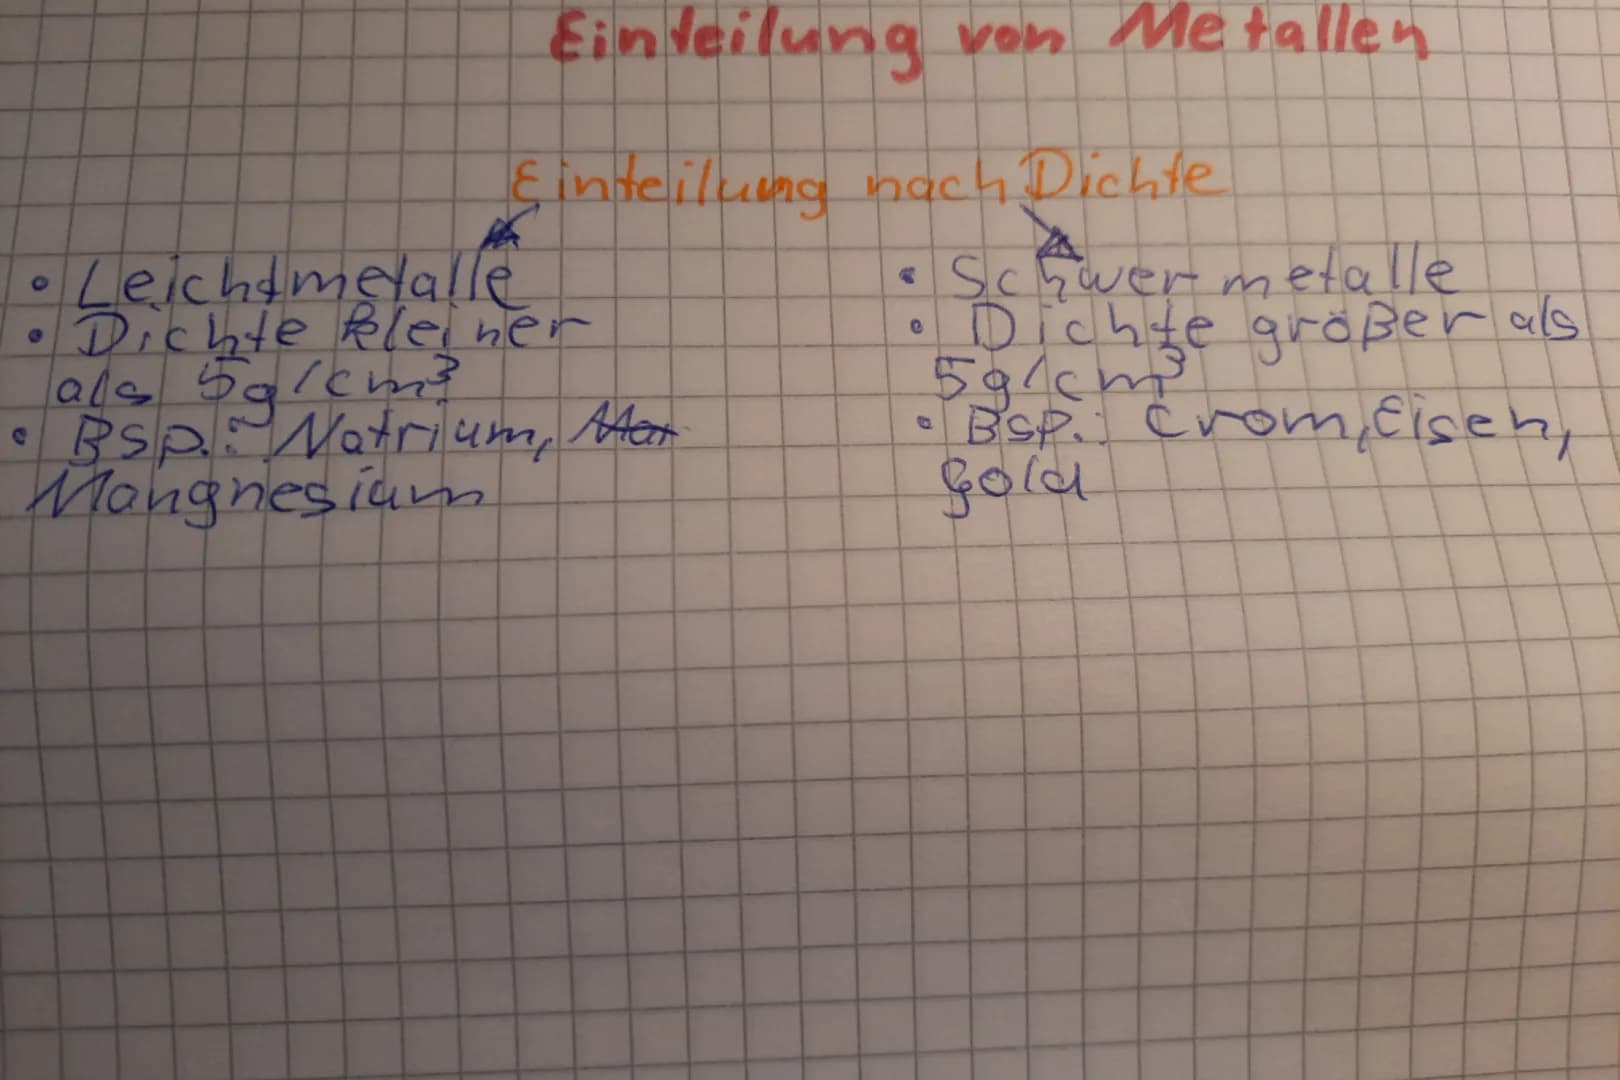 Einteilung von Metallen
Einteilung nach Dichte
• Leichtmetalle
• Dichte kleiner
als 5g/cm³
• Bsp.: Natrium,
Mangnesium
• Schwermetalle
• Dichte größer als
5g/cm³
• Bsp.: Crom, Eisen,
Gold